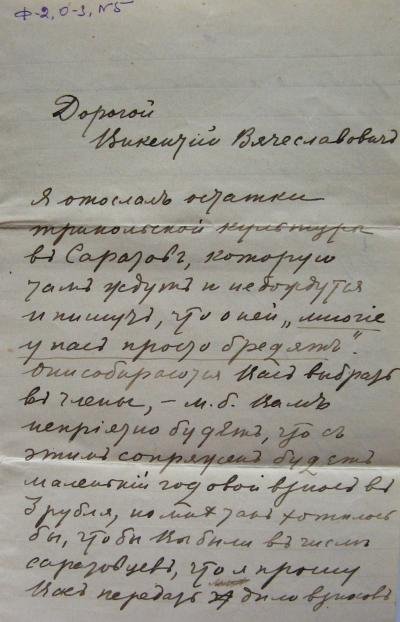 Ф-2, О-3, №5
Дорогой
Викентий Вячеславовичъ
Я отослалъ остатки
трипольской культуры
въ Саратовъ, которую
тамъ ждутъ и не дождутся
и пишутъ, что о ней „многіе
у насъ просто бредятъ".
Они собираются Васъ выбрать
въ члены, – м. б. Вамъ
непріятно будетъ, что съ
этимъ сопряженъ будетъ
маленькій годовой взносъ въ
3 рубля, но мнѣ такъ хотѣлось
бы, чтобы Вы были въ числѣ
саратовцевъ, что я прошу
Васъ передать дѣло взносовъ